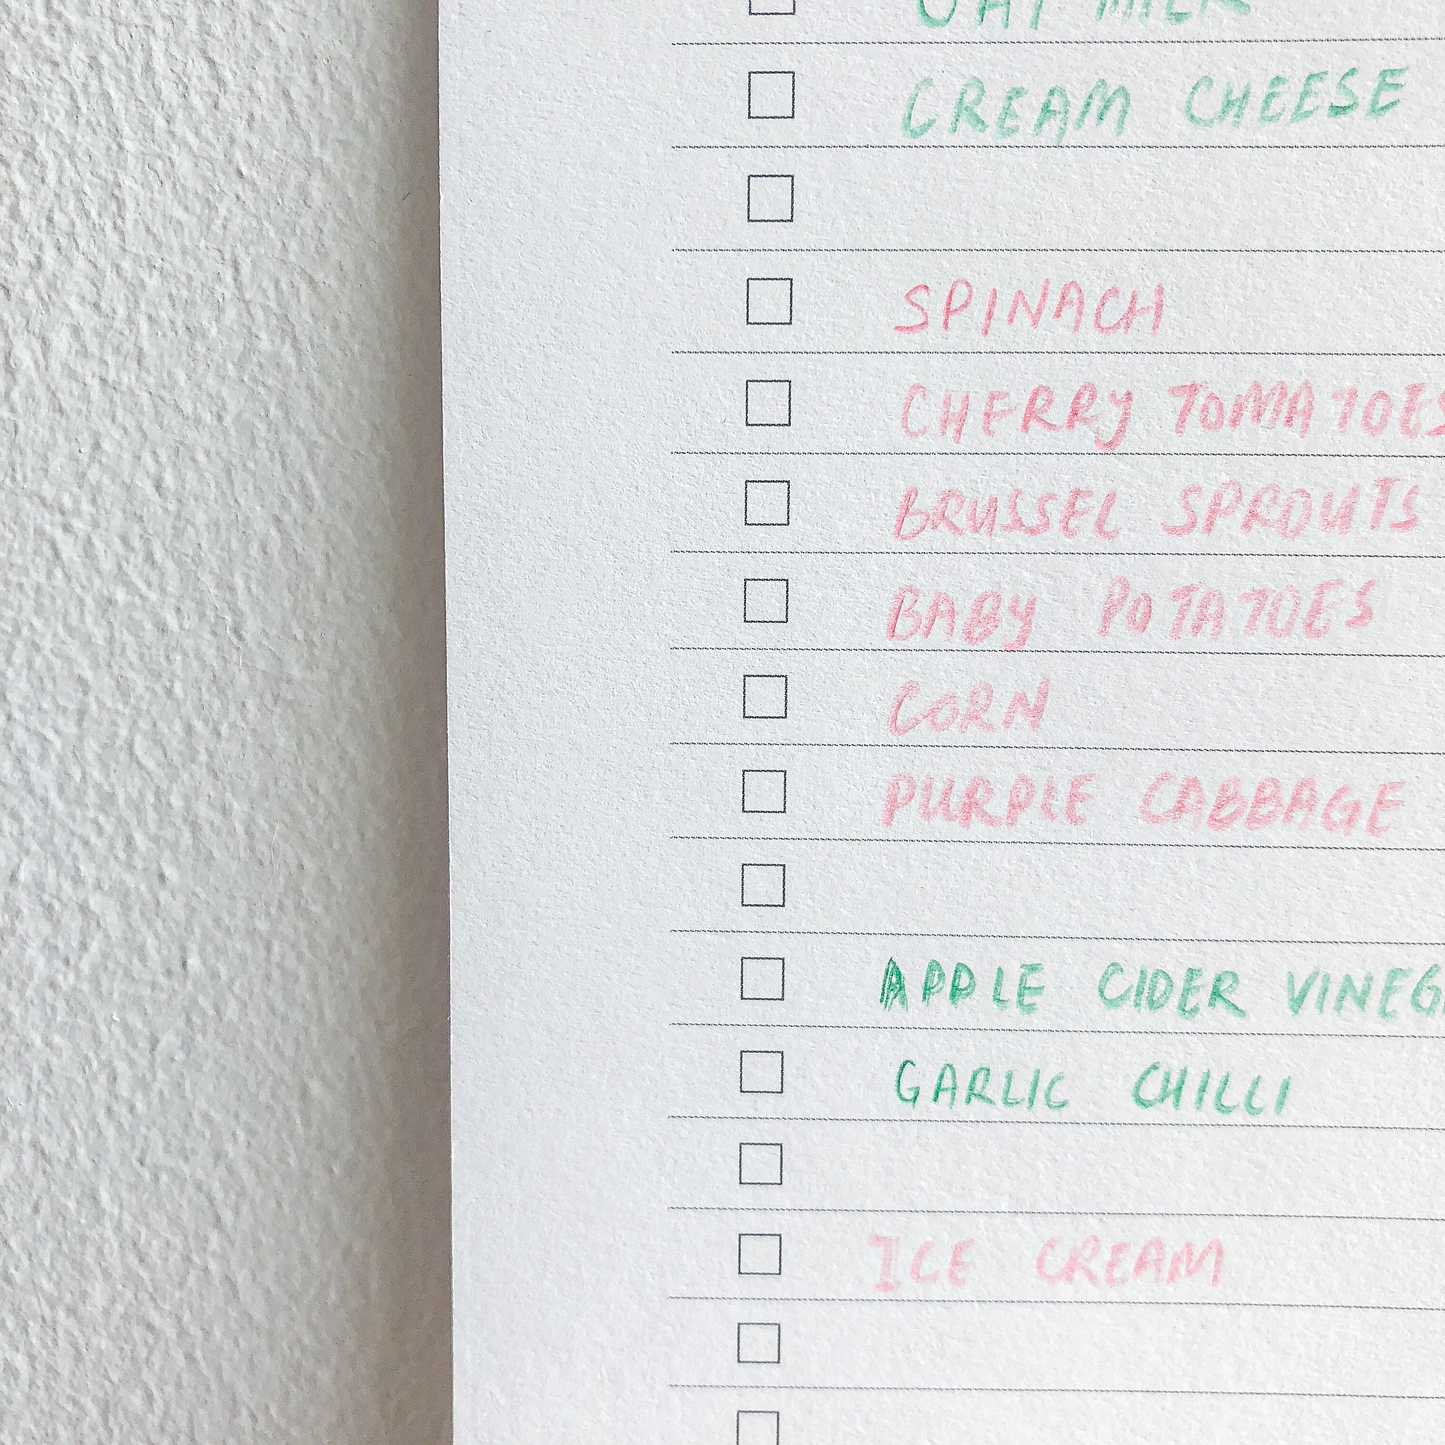 OAT MILK
CREAM CHEESE
SPINACH
CHERRY TOMATOES
BRUSSEL SPROUTS
BABY POTATOES
CORN
PURPLE CABBAGE
APPLE CIDER VINEG
GARLIC CHILLI
ICE CREAM